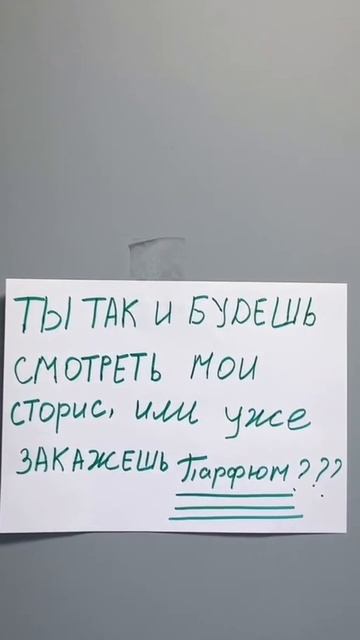 ТЫ ТАК И БУДЕШЬ
СМОТРЕТЬ МОИ
СТОРИС, ИЛИ УЖЕ
ЗАКАЖЕШЬ Парфюм???